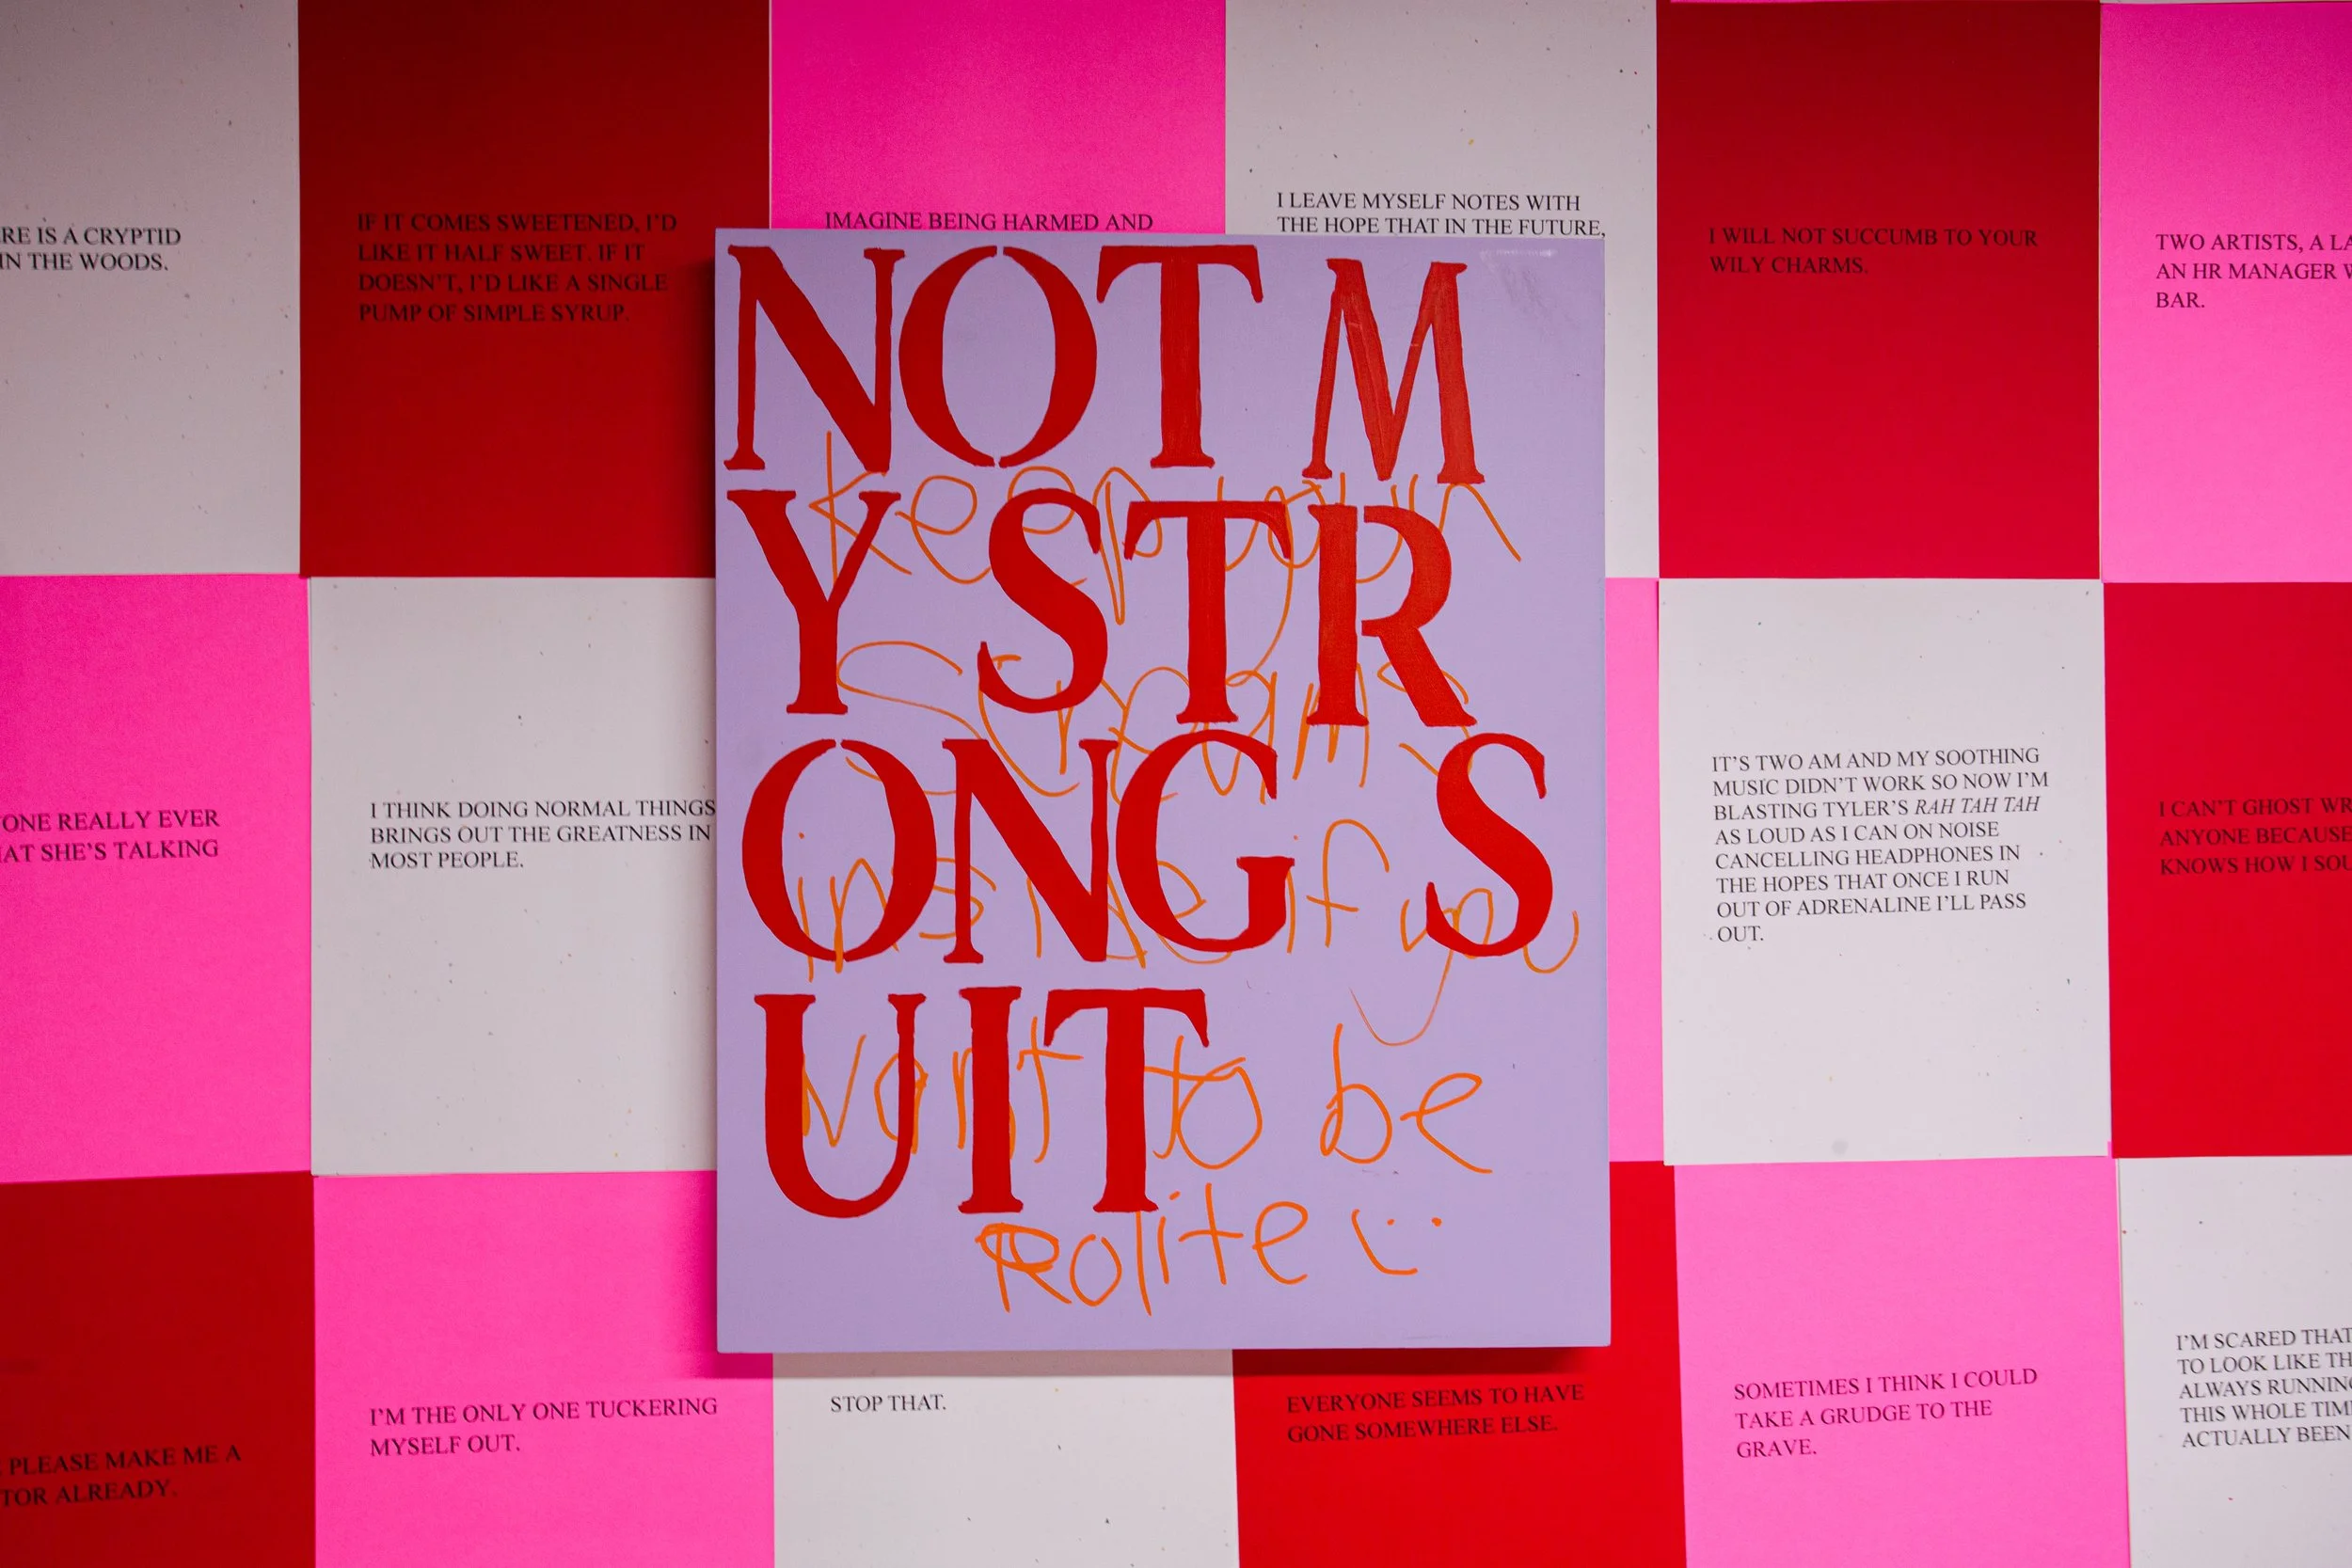 RE IS A CRYPTID
IN THE WOODS.
IF IT COMES SWEETENED, I'D
LIKE IT HALF SWEET. IF IT
DOESN'T, I'D LIKE A SINGLE
PUMP OF SIMPLE SYRUP.
IMAGINE BEING HARMED AND
I LEAVE MYSELF NOTES WITH
THE HOPE THAT IN THE FUTURE,
I WILL NOT SUCCUMB TO YOUR
WILY CHARMS.
TWO ARTISTS, A LA
AN HR MANAGER W
BAR.
NOT M
Y STR
ONG S
UIT
keep your
screams
inside if you
want to be
Polite :)
ONE REALLY EVER
AT SHE'S TALKING
I THINK DOING NORMAL THINGS
BRINGS OUT THE GREATNESS IN
MOST PEOPLE.
IT'S TWO AM AND MY SOOTHING
MUSIC DIDN'T WORK SO NOW I'M
BLASTING TYLER'S RAH TAH TAH
AS LOUD AS I CAN ON NOISE
CANCELLING HEADPHONES IN
THE HOPES THAT ONCE I RUN
OUT OF ADRENALINE I'LL PASS
OUT.
I CAN'T GHOST WR
ANYONE BECAUSE
KNOWS HOW I SOU
PLEASE MAKE ME A
TOR ALREADY.
I'M THE ONLY ONE TUCKERING
MYSELF OUT.
STOP THAT.
EVERYONE SEEMS TO HAVE
GONE SOMEWHERE ELSE.
SOMETIMES I THINK I COULD
TAKE A GRUDGE TO THE
GRAVE.
I'M SCARED THAT
TO LOOK LIKE TH
ALWAYS RUNNING
THIS WHOLE TIM
ACTUALLY BEEN